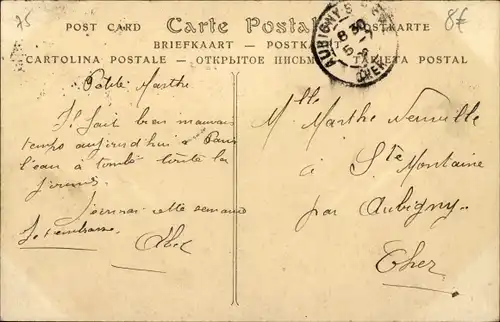 75
8€
POST CARD Carte Postale POSTKARTE
BRIEFKAART — POSTKART
CARTOLINA POSTALE — ОТКРЫТОЕ ПИСЬМО TARJETA POSTAL
AUBIGNY S
8 30
CHER
Petite Marthe
Il fait bien mauvais
temps aujourd'hui à Paris
l'eau à tombé toute la
cette semaine
Je t'embrasse
Abel
Mlle
Marthe Neuville
à Ste Montaine
par Aubigny
Cher